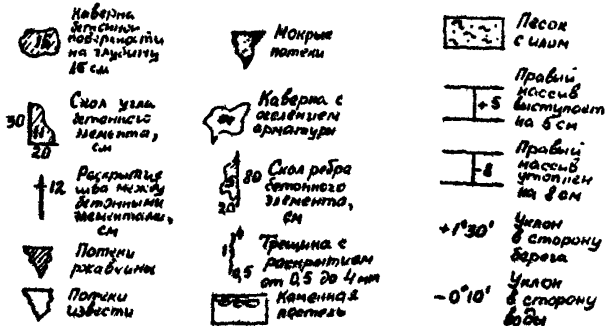 Каверна
бетонной
поверхности
на глубину
15 см
15
30
11
20
Скол угла
бетонного
элемента,
см
12
Раскрытие
шва между
бетонными
элементами,
см
Потеки
ржавчины
Потеки
извести
Мокрые
потеки
Каверна с
оголением
арматуры
80
20
Скол ребра
бетонного
элемента,
см
1
4
0,5
Трещина с
раскрытием
от 0,5 до 4 мм
Каменная
постель
Песок
с илом
+5
Правый
массив
выступает
на 5 см
-8
Правый
массив
утоплен
на 8 см
+1°30'
Уклон
в сторону
берега
-0°10'
Уклон
в сторону
воды